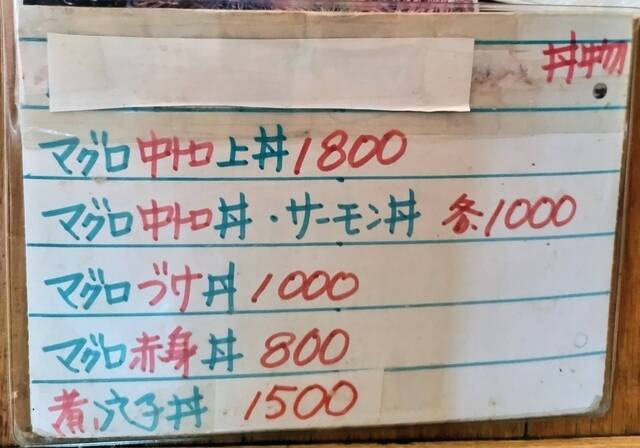 丼物
マグロ中トロ上丼1800
マグロ中トロ丼・サーモン丼 各1000
マグロづけ丼 1000
マグロ赤身丼 800
煮穴子丼 1500